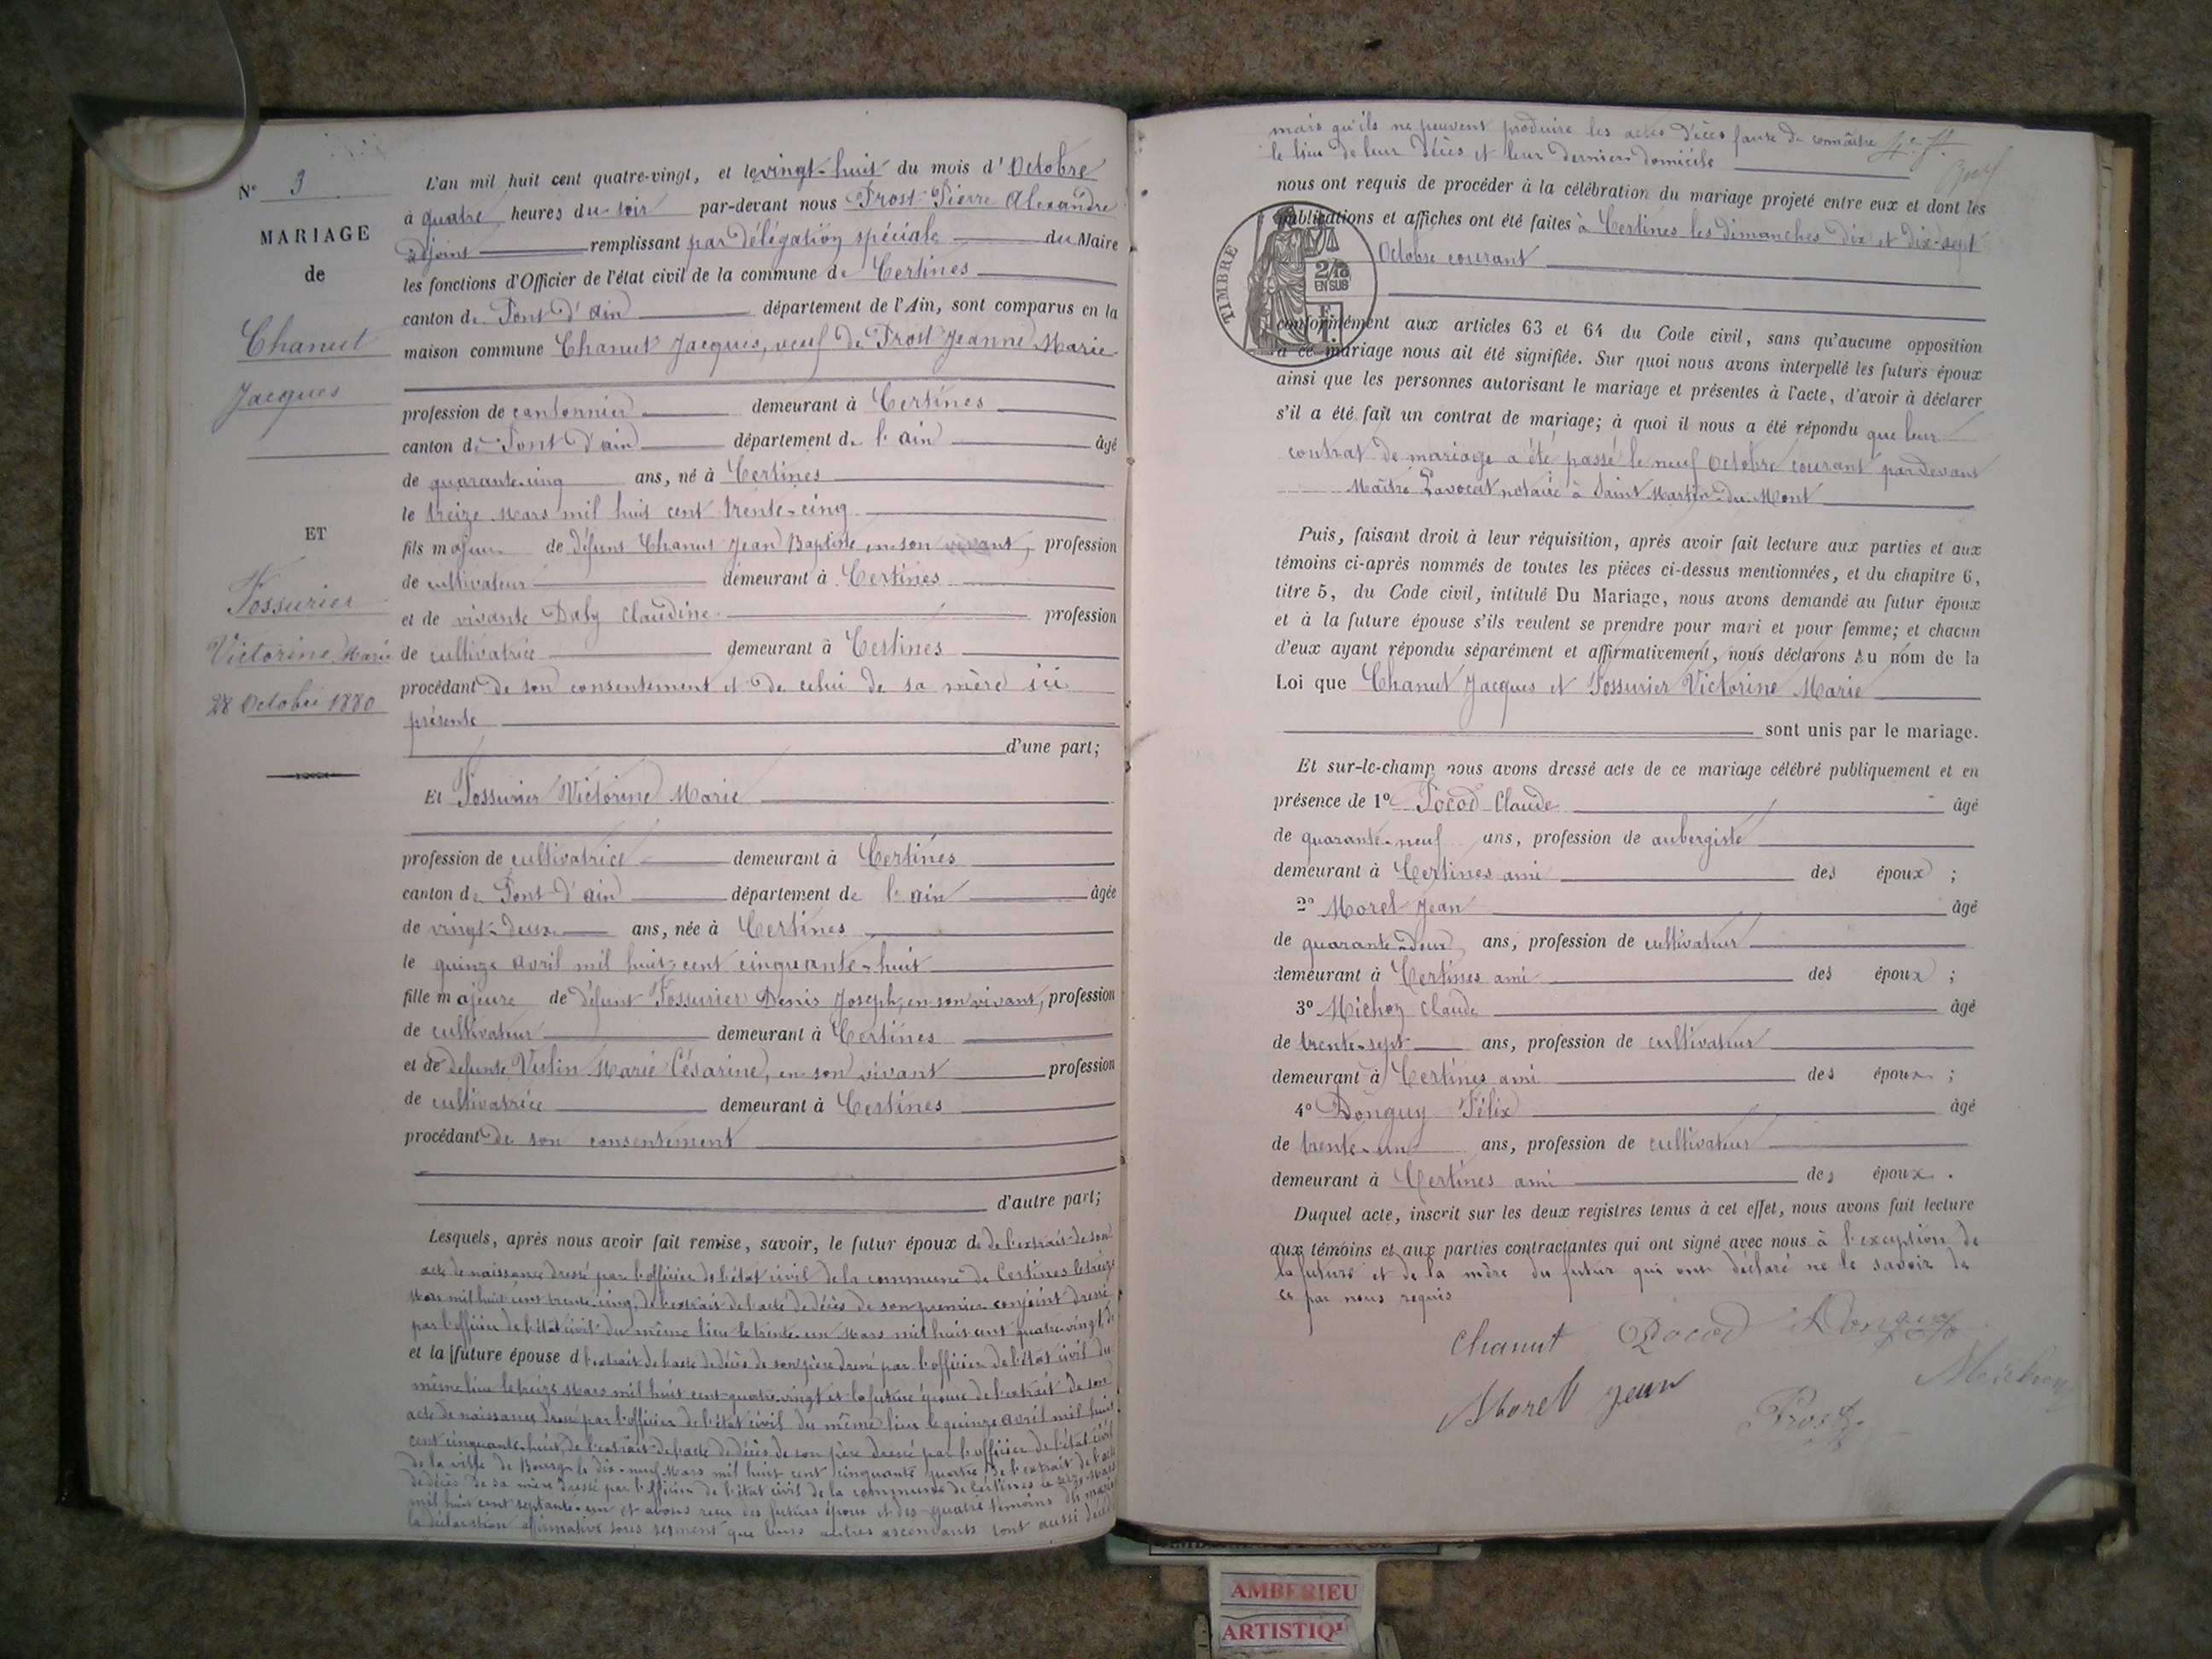 N° 3
MARIAGE
de
Chanut
Jacques
ET
Fossurier
Victorine Marie
28 Octobre 1880
L'an mil huit cent quatre-vingt, et le vingt-huit du mois d'Octobre
à quatre heures du soir par-devant nous Prost Pierre Alexandre
adjoint remplissant par délégation spéciale du Maire
les fonctions d'Officier de l'état civil de la commune de Certines
canton de Pont d'ain département de l'Ain, sont comparus en la
maison commune Chanut Jacques, veuf de Prost Jeanne Marie
profession de cantonnier demeurant à Certines
canton de Pont d'ain département de l'ain âgé
de quarante-cinq ans, né à Certines
le treize Mars mil huit cent trente-cinq
fils majeur de défunt Chanut Jean Baptiste en son vivant, profession
de cultivateur demeurant à Certines
et de vivante Daly Claudine profession
de cultivatrice demeurant à Certines
procédant de son consentement et de celui de sa mère ici
présente
d'une part;
Et Fossurier Victorine Marie
profession de cultivatrice demeurant à Certines
canton de Pont-d'ain département de l'ain âgée
de vingt-deux ans, née à Certines
le quinze avril mil huit cent cinquante-huit
fille majeure de défunt Fossurier Denis Joseph, en son vivant, profession
de cultivateur demeurant à Certines
et de défunte Vulin Marie Césarine, en son vivant profession
de cultivatrice demeurant à Certines
procédant de son consentement
d'autre part;
Lesquels, après nous avoir fait remise, savoir, le futur époux de de l'extrait de son
acte de naissance dressé par l'officier de l'état civil de la commune de Certines le treize
Mars mil huit cent trente-cinq, de l'extrait de l'acte de décès de son premier conjoint dressé
par l'officier de l'état civil du même lieu le trente-un Mars mil huit cent quatre-vingt, de
et la future épouse d l'extrait de l'acte de décès de son père dressé par l'officier de l'état civil du
même lieu le treize Mars mil huit cent quatre-vingt et la future épouse de l'extrait de son
acte de naissance dressé par l'officier de l'état civil du même lieu le quinze avril mil huit
cent cinquante-huit, de l'extrait de l'acte de décès de son père dressé par l'officier de l'état civil
de la ville de Bourg le dix-neuf Mars mil huit cent cinquante quatre, de l'extrait de l'acte
de décès de sa mère dressé par l'officier de l'état civil de la commune de Certines le seize Mars
mil huit cent septante-un et avons reçu des futurs époux et des quatre témoins du mariage
la déclaration affirmative sous serment que leurs autres ascendants sont aussi décédés
mais qu'ils ne peuvent produire les actes d'écès faute de connaître
le lieu de leur décès et leur dernier domicile
nous ont requis de procéder à la célébration du mariage projeté entre eux et dont les
publications et affiches ont été faites à Certines les dimanches dix et dix-sept
Octobre courant
TIMBRE
2/10
EN SUS
conformément aux articles 63 et 64 du Code civil, sans qu'aucune opposition
à ce mariage nous ait été signifiée. Sur quoi nous avons interpellé les futurs époux
ainsi que les personnes autorisant le mariage et présentes à l'acte, d'avoir à déclarer
s'il a été fait un contrat de mariage; à quoi il nous a été répondu que leur
contrat de mariage a été passé le neuf Octobre courant pardevant
Maître Lavocat notaire à Saint Martin-du-Mont
Puis, faisant droit à leur réquisition, après avoir fait lecture aux parties et aux
témoins ci-après nommés de toutes les pièces ci-dessus mentionnées, et du chapitre 6,
titre 5, du Code civil, intitulé Du Mariage, nous avons demandé au futur époux
et à la future épouse s'ils veulent se prendre pour mari et pour femme; et chacun
d'eux ayant répondu séparément et affirmativement, nous déclarons Au nom de la
Loi que Chanut Jacques et Fossurier Victorine Marie
sont unis par le mariage.
Et sur-le-champ nous avons dressé acte de ce mariage célébré publiquement et en
présence de 1° Pocod Claude âgé
de quarante-neuf ans, profession de aubergiste
demeurant à Certines ami des époux ;
2° Morel Jean âgé
de quarante-deux ans, profession de cultivateur
demeurant à Certines ami des époux ;
3° Michon Claude âgé
de trente-sept ans, profession de cultivateur
demeurant à Certines ami des époux ;
4° Donguy Félix âgé
de trente-un ans, profession de cultivateur
demeurant à Certines ami des époux .
Duquel acte, inscrit sur les deux registres tenus à cet effet, nous avons fait lecture
aux témoins et aux parties contractantes qui ont signé avec nous à l'exception de
la future et de la mère du futur qui ont déclaré ne le savoir de
ce par nous requis
Chanut Pocod Donguy
Morel Jean Michon
Prost
AMBERIEU
ARTISTIQ